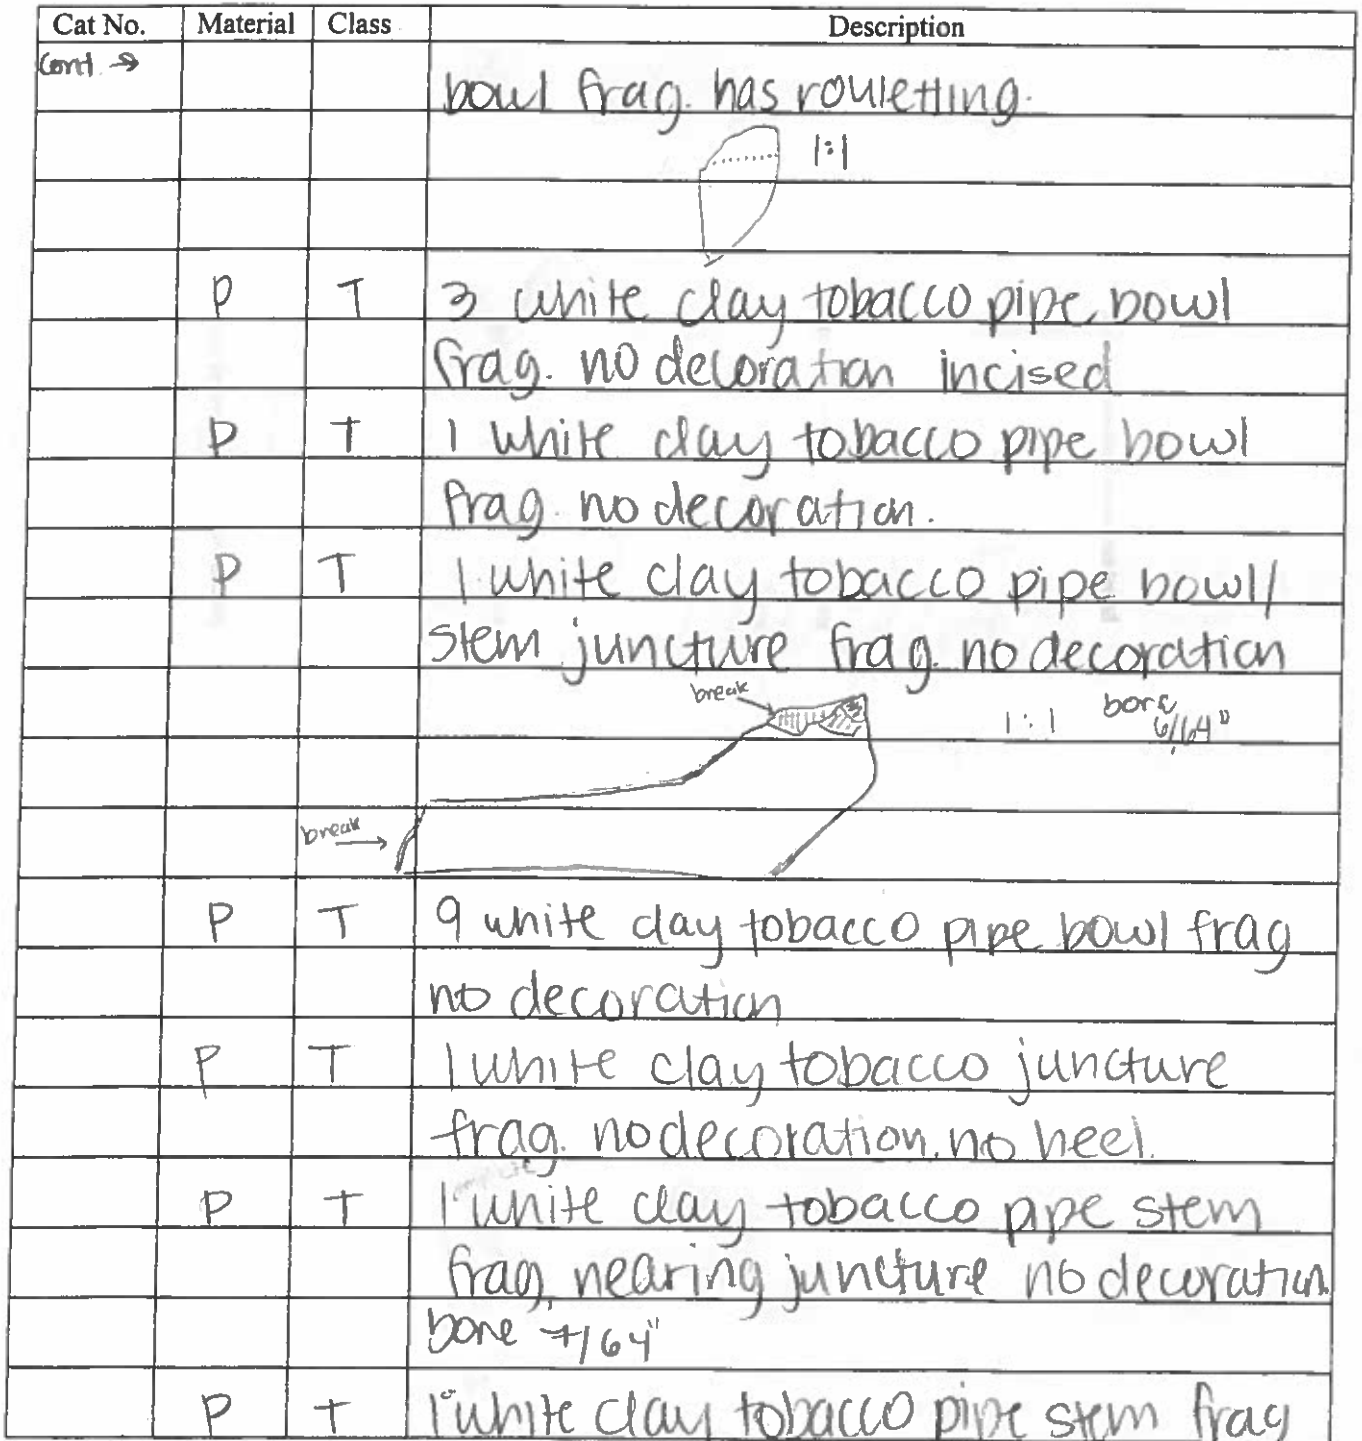 Cat No. Material Class Description
Cont. →
bowl frag. has rouletting.
1:1
P T 3 white clay tobacco pipe bowl
frag. no decoration incised
P T 1 white clay tobacco pipe bowl
frag. no decoration.
P T 1 white clay tobacco pipe bowl/
stem juncture frag. no decoration
break
1:1 bore
6/64"
break →
P T 9 white clay tobacco pipe bowl frag
no decoration
P T 1 white clay tobacco juncture
frag. no decoration. no heel.
P T 1 white clay tobacco pipe stem
frag, nearing juncture no decoration.
bore 7/64"
P T 1 white clay tobacco pipe stem frag